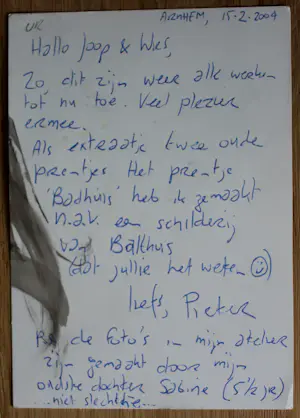 ARNHEM, 15-2-2004
Hallo Joop & Wies,
Zo, dit zijn weer alle werken
tot nu toe. Veel plezier
ermee.
Als extraatje twee oude
prentjes Het prentje
'Badhuis' heb ik gemaakt
n.a.v. een schilderij
van Balthus
(dat jullie het weten ☺)
liefs, Pieter
PS. de foto's in mijn atelier
zijn gemaakt door mijn
oudste dochter Sabine (5 1/2 jr)
...niet slecht hè...